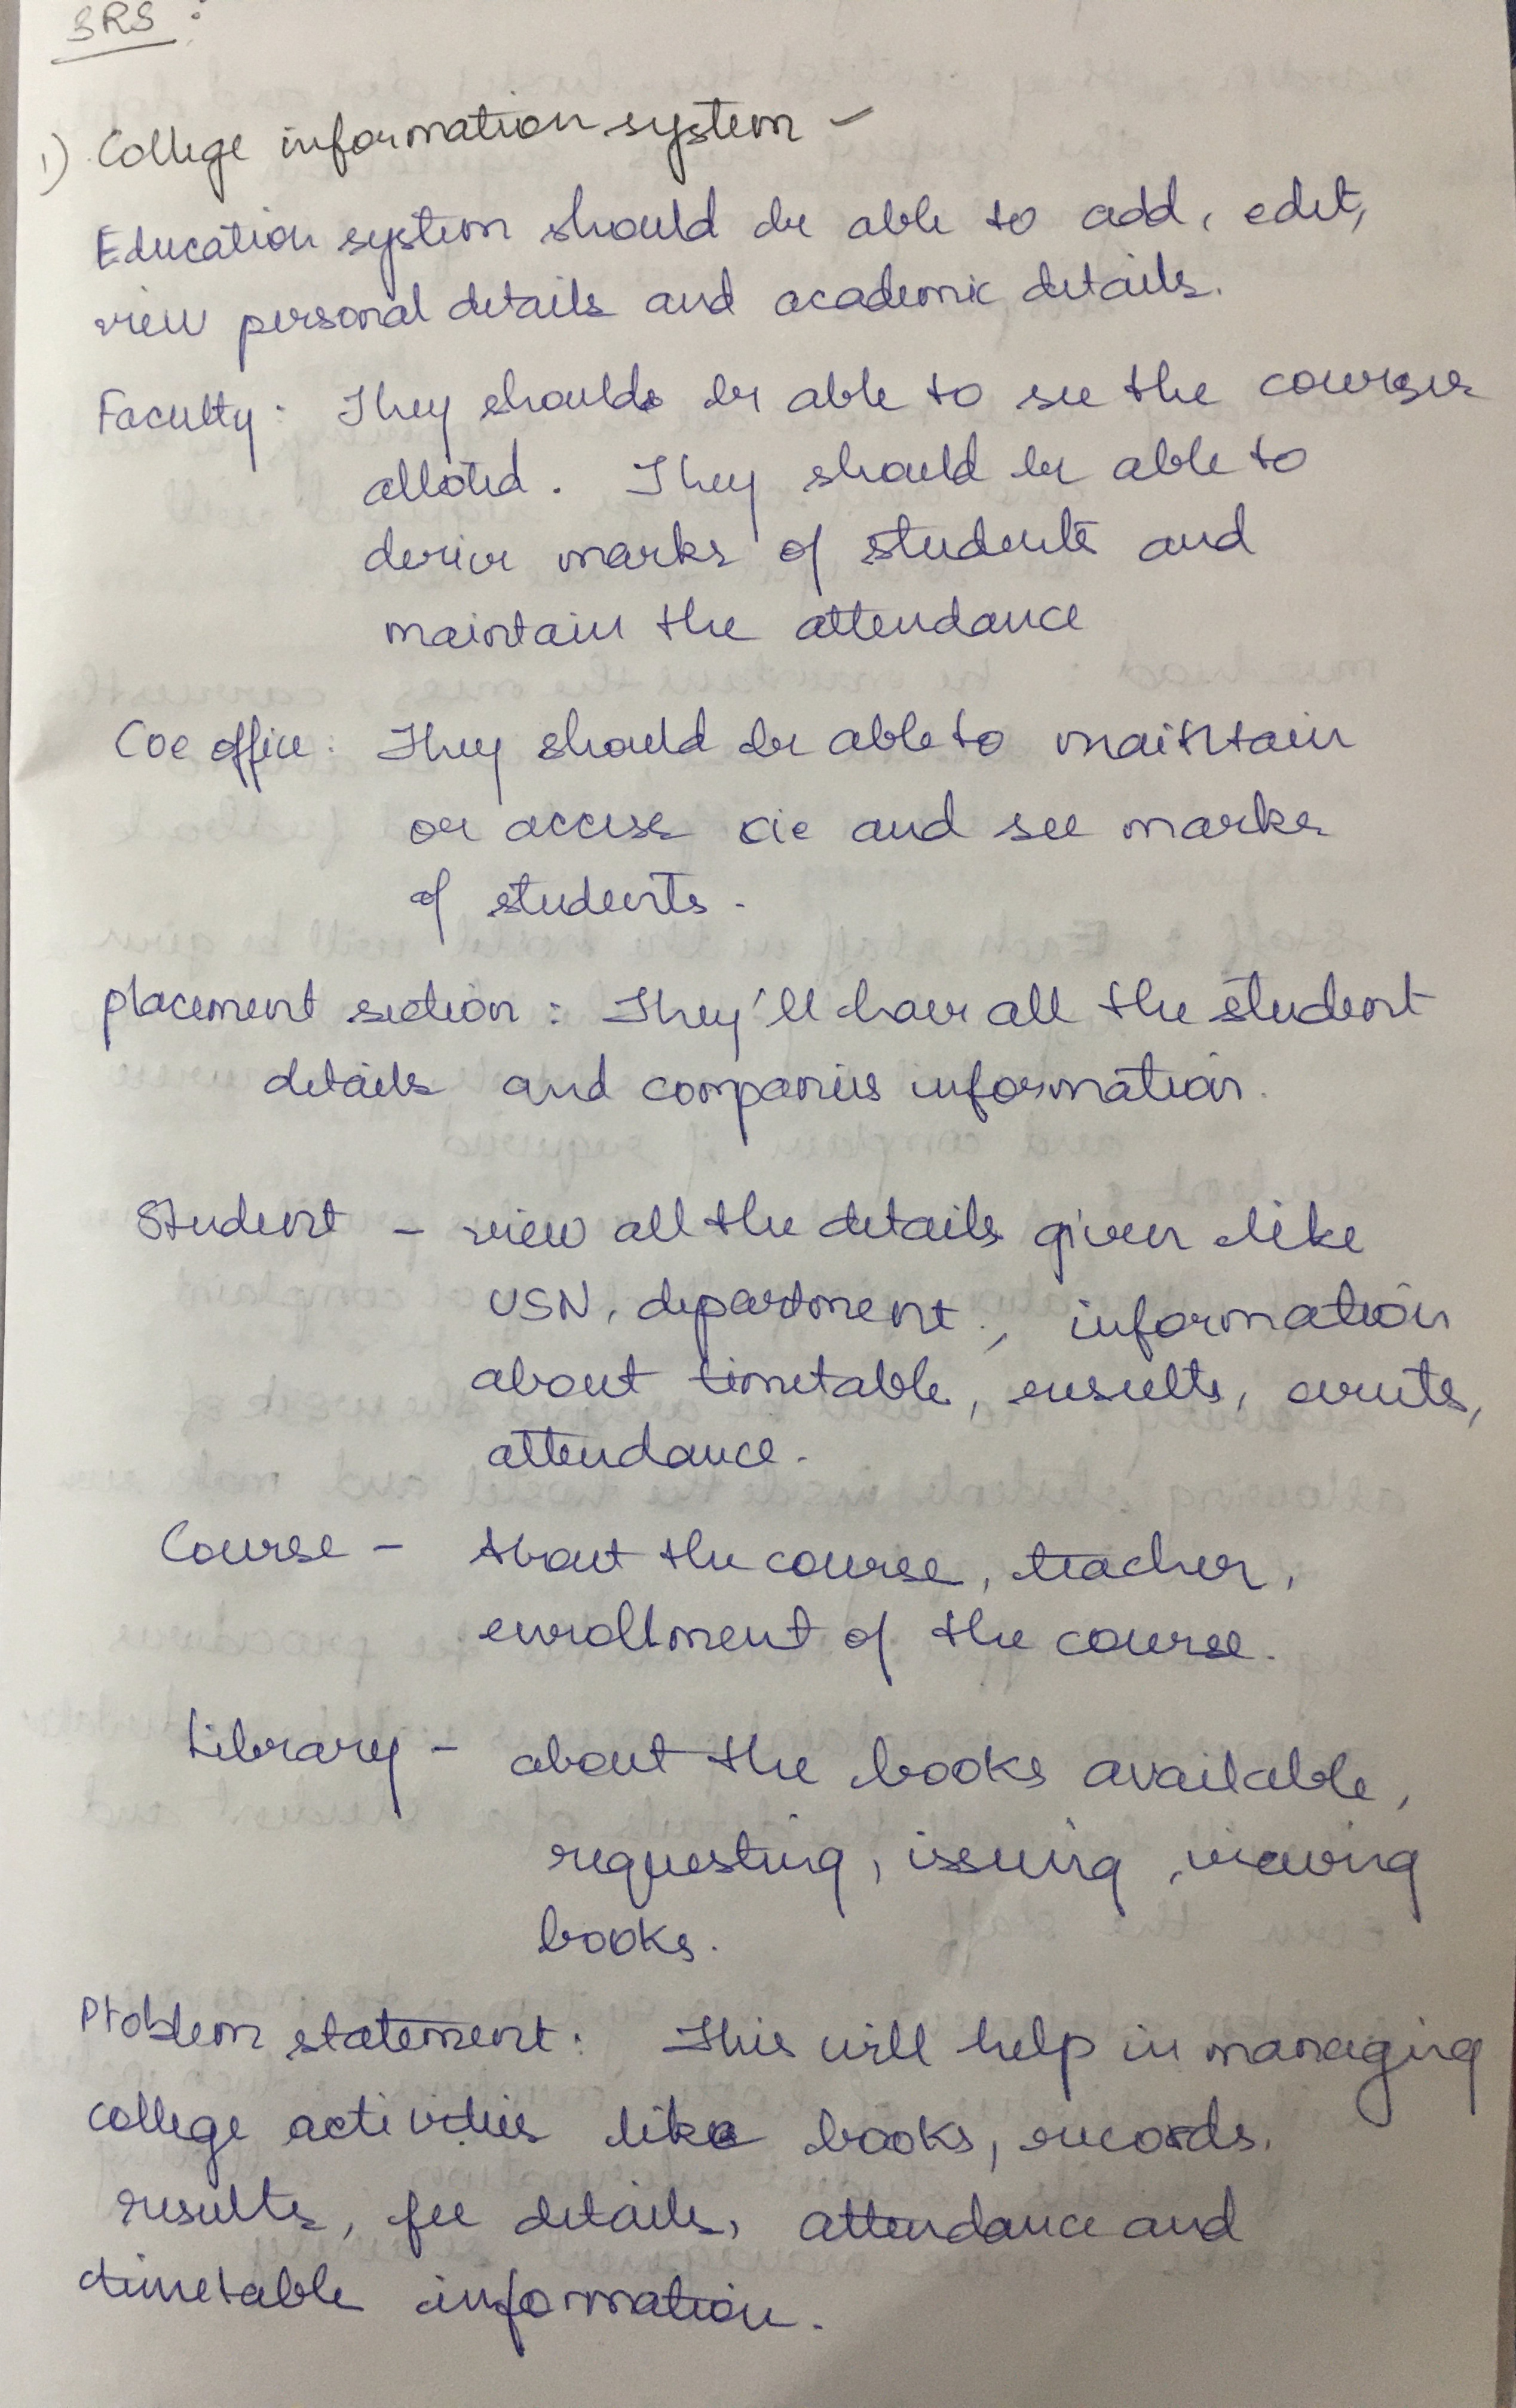 SRS :
1) College information system -
Education system should be able to add, edit,
view personal details and academic details.
Faculty : They should be able to see the courses
alloted. They should be able to
derive marks of students and
maintain the attendance
Coe office : They should be able to maintain
or access cie and see marks
of students.
placement section : They'll have all the student
details and companies information.
Student - view all the details given like
USN, department, information
about timetable, results, events,
attendance.
Course - About the course, teacher,
enrollment of the course.
Library - about the books available,
requesting, issuing, viewing
books.
Problem statement : This will help in managing
college activities like books, records,
results, fee details, attendance and
timetable information.